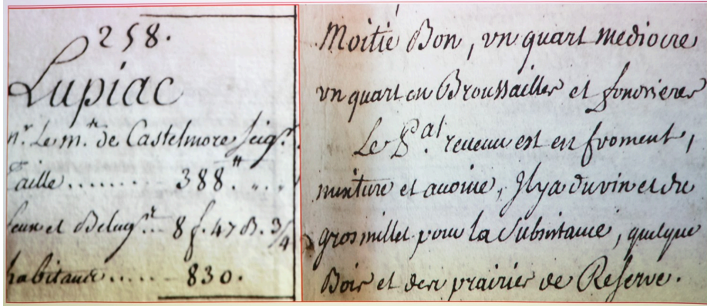 258.
Lupiac
nr. Le mis. de Castelmore seigr.
aille ....... 388.tt ...
feux et Belugt. .. 8 f. 47 B. 3/4
habitans ..... 830.
Moitié Bon, un quart mediocre
un quart en Broussailles et fondrieres
Le Pal. revenu est en froment,
mixture et avoine, Il y a du vin et du
gros millet pour la subsistance, quelque
Bois et des prairies de Reserve.